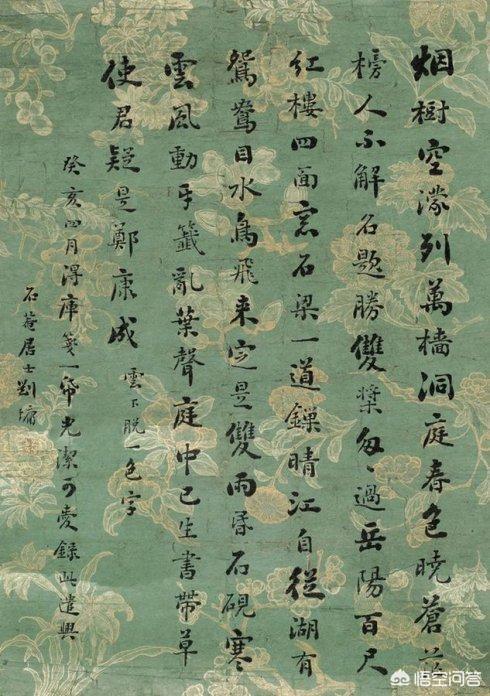 烟樹空濛列萬檣洞庭春色曉蒼茫
榜人不解名題勝雙槳匆〻過岳陽百尺
紅樓四面窓石梁一道鏁晴江自從湖有
鴛鴦目水鳥飛来定是雙雨昏石硯寒
雲風動牙籤亂葉聲庭中已生書帶草
使君疑是鄭康成 雲下脱一色字
癸亥四月得庫箋一帋光潔可愛錄此遣興
石菴居士劉墉
悟空问答